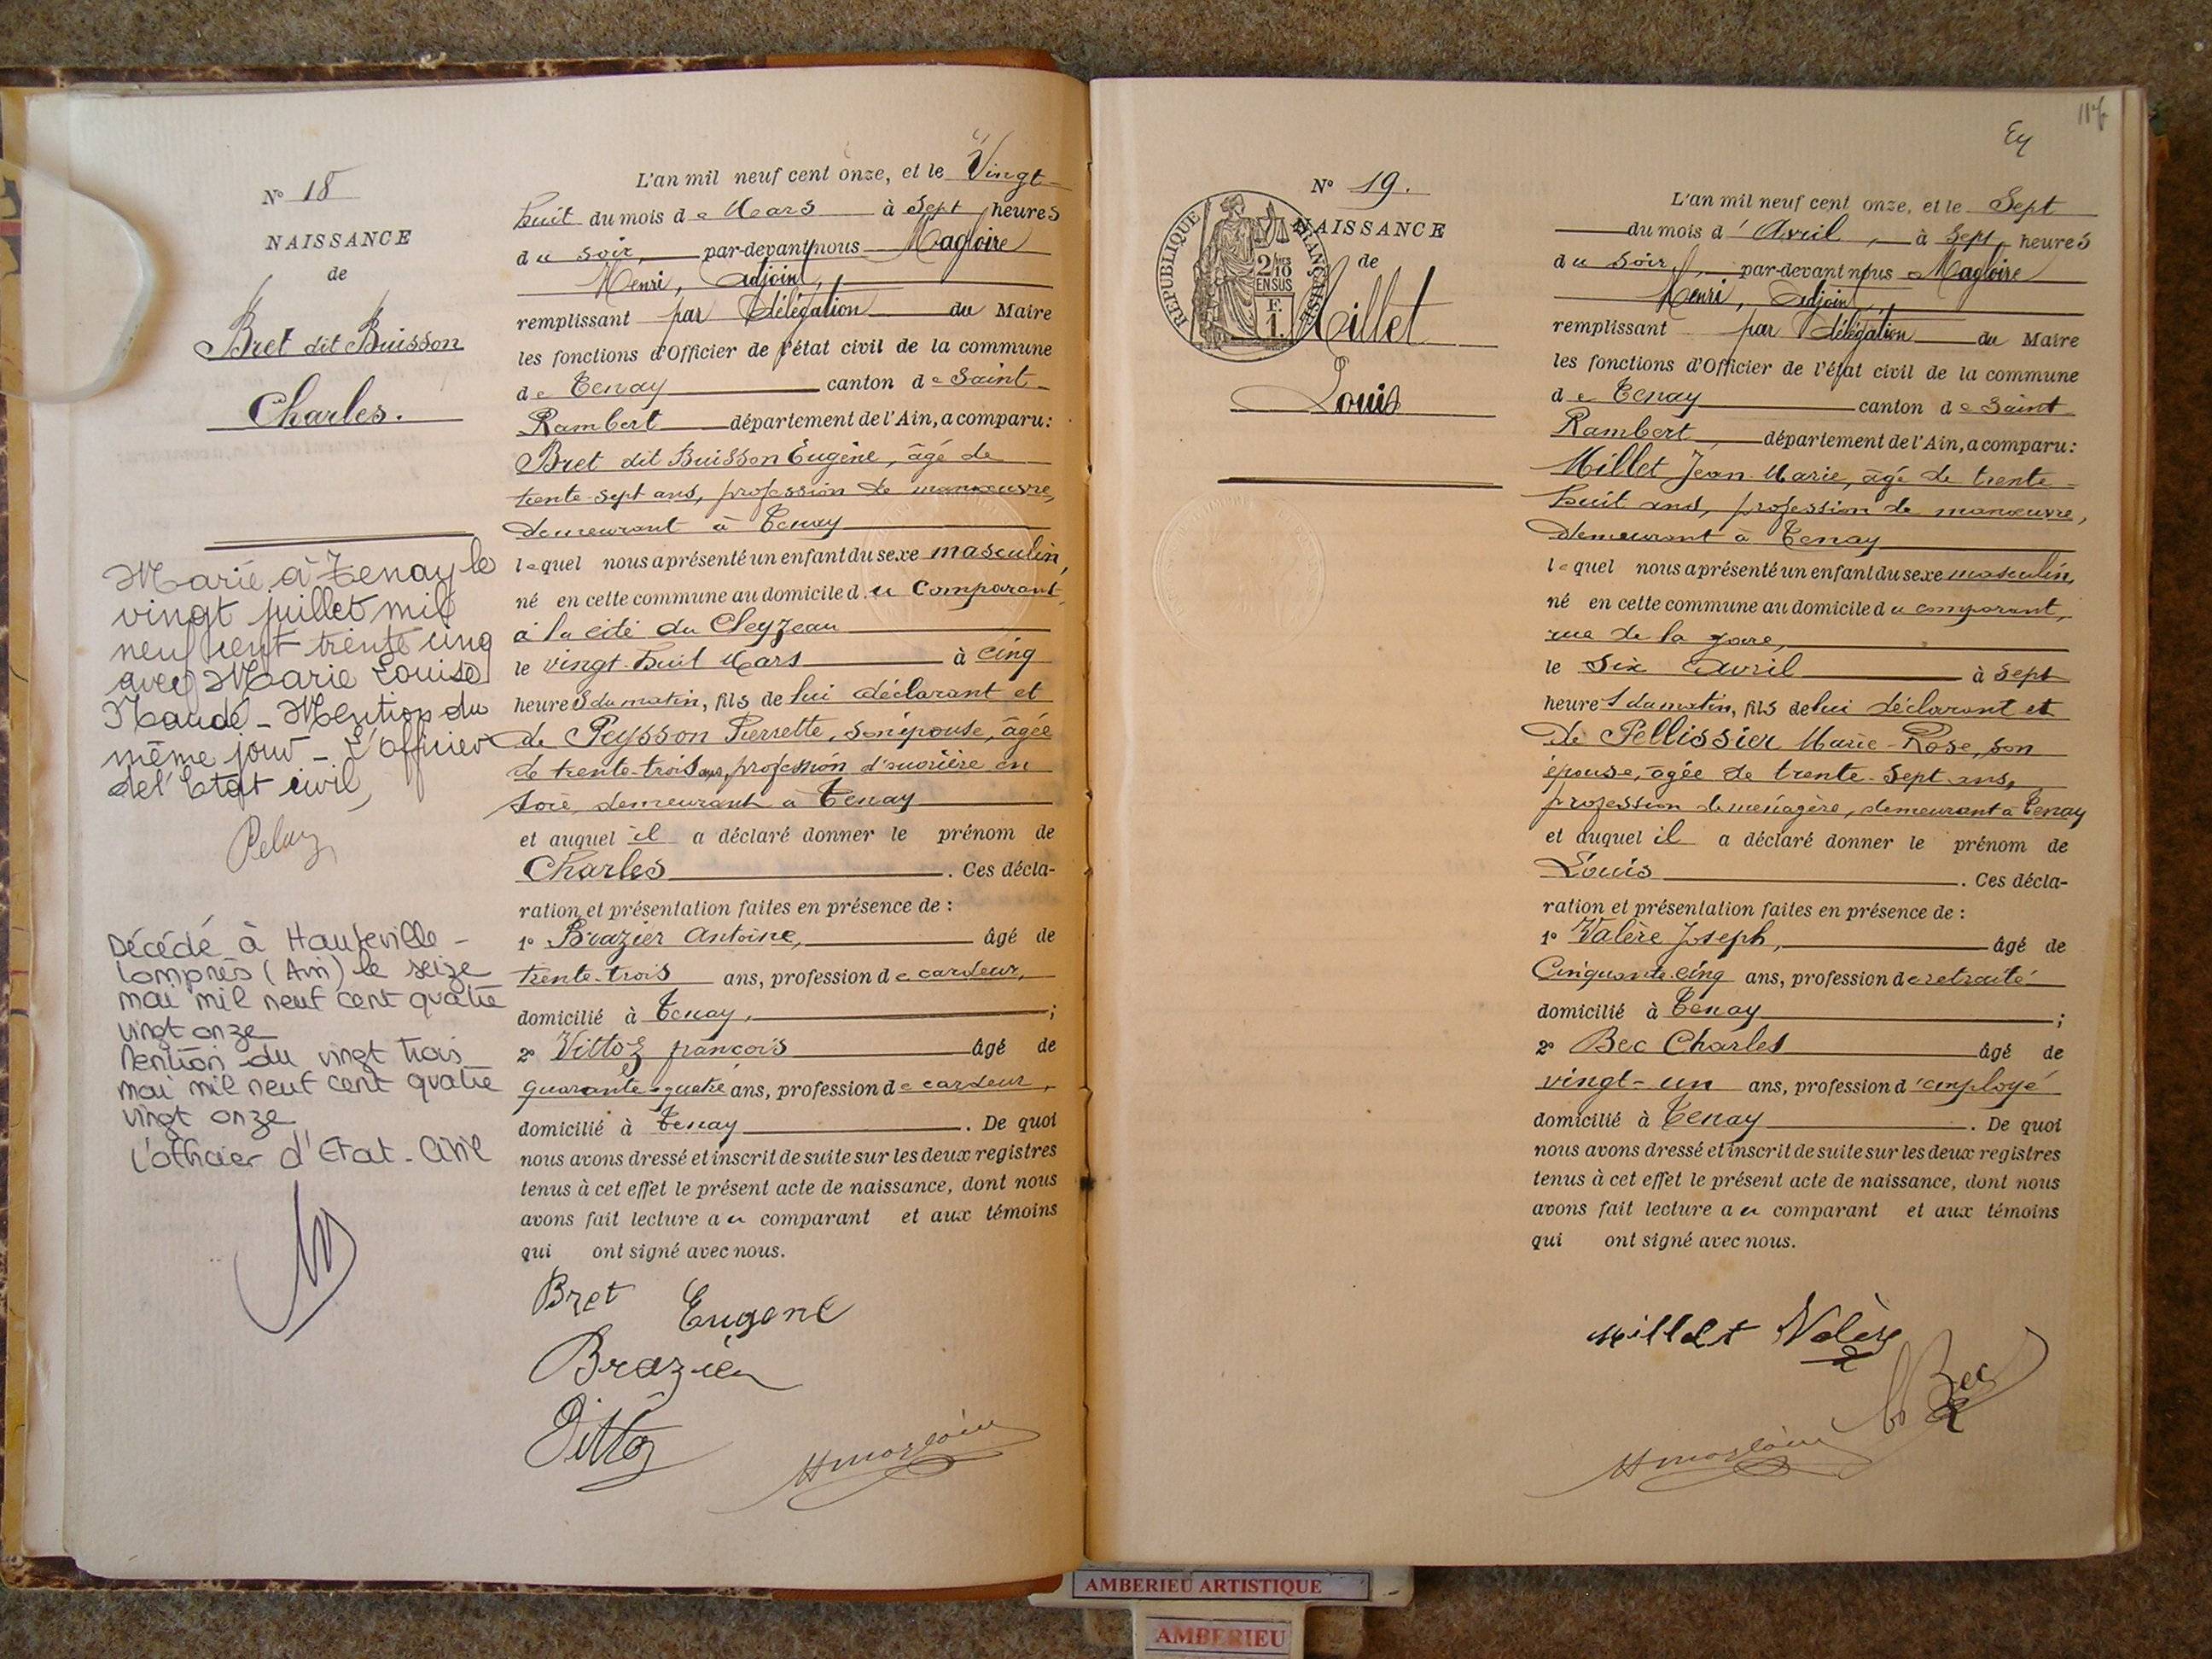 N° 18
NAISSANCE
de
Bret dit Buisson
Charles.
Marié à Tenay le
vingt juillet mil
neuf cent trente cinq
avec Marie Louise
Naudé - Mention du
même jour - L'officier
de l'Etat civil,
Décédé à Hauteville -
Lompnès (Ain) le seize
mai mil neuf cent quatre
vingt onze
Mention du vingt trois
mai mil neuf cent quatre
vingt onze
L'officier d'Etat-Civil
L'an mil neuf cent onze, et le Vingt-
huit du mois de Mars à sept heures
du soir, par-devant nous Magloire
Henri, adjoint,
remplissant par délégation du Maire
les fonctions d'Officier de l'état civil de la commune
de Tenay canton de Saint-
Rambert département de l'Ain, a comparu:
Bret dit Buisson Eugène, âgé de
trente-sept ans, profession de manoeuvre,
demeurant à Tenay
lequel nous a présenté un enfant du sexe masculin,
né en cette commune au domicile du Comparant
à la cité du Cleyzeau
le vingt-huit Mars à cinq
heures du matin, fils de lui déclarant et
de Peysson Pierrette, son épouse, âgée
de trente-trois ans, profession d'ouvrière en
soie, demeurant à Tenay
et auquel il a déclaré donner le prénom de
Charles . Ces décla-
ration et présentation faites en présence de :
1° Brazier Antoine, âgé de
trente-trois ans, profession de cardeur,
domicilié à Tenay, ;
2° Vittoz françois âgé de
quarante-quatre ans, profession de cardeur,
domicilié à Tenay . De quoi
nous avons dressé et inscrit de suite sur les deux registres
tenus à cet effet le présent acte de naissance, dont nous
avons fait lecture au comparant et aux témoins
qui ont signé avec nous.
Bret Eugene
Brazier
Vittoz
H Magloire
117
N° 19.
NAISSANCE
de
Millet
Louis
RÉPUBLIQUE FRANÇAISE
2/10
EN SUS
F.
1.
L'an mil neuf cent onze, et le Sept
du mois d'Avril, à sept heures
du soir, par-devant nous Magloire
Henri, adjoint,
remplissant par délégation du Maire
les fonctions d'Officier de l'état civil de la commune
de Tenay canton de Saint
Rambert, département de l'Ain, a comparu:
Millet Jean-Marie, âgé de trente-
huit ans, profession de manoeuvre,
demeurant à Tenay
lequel nous a présenté un enfant du sexe masculin,
né en cette commune au domicile du comparant,
rue de la gare,
le six avril à sept
heures du matin, fils de lui déclarant et
de Pellissier Marie-Rose, son
épouse, âgée de trente-sept ans,
profession de ménagère, demeurant à Tenay
et auquel il a déclaré donner le prénom de
Louis . Ces décla-
ration et présentation faites en présence de :
1° Valère Joseph, âgé de
Cinquante-cinq ans, profession de retraité
domicilié à Tenay ;
2° Bec Charles âgé de
vingt-un ans, profession d'employé
domicilié à Tenay . De quoi
nous avons dressé et inscrit de suite sur les deux registres
tenus à cet effet le présent acte de naissance, dont nous
avons fait lecture au comparant et aux témoins
qui ont signé avec nous.
Millet Valère
Bec
H Magloire
AMBERIEU ARTISTIQUE
AMBERIEU